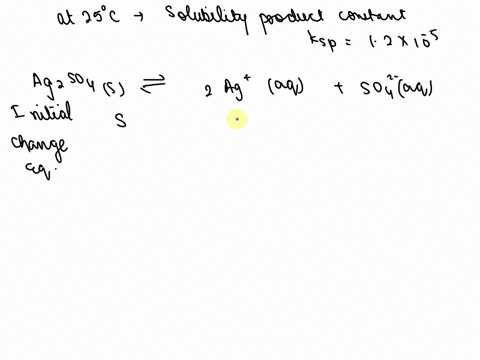 at 25°C → Solubility product constant
Ksp = 1.2 × 10⁻⁵
Ag₂SO₄ (s) ⇌ 2 Ag⁺ (aq) + SO₄²⁻ (aq)
Initial S
change
eq.